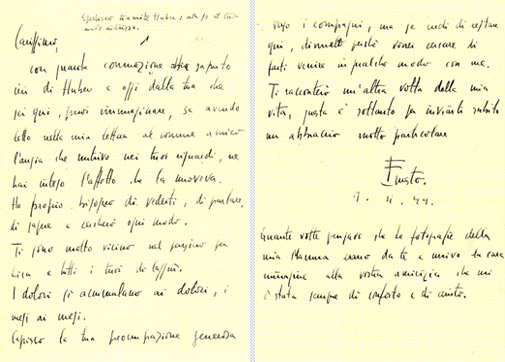 Carissimo,
con quanta commozione ho saputo
ieri di Huber e oggi dalla tua che
sei qui, puoi immaginare, se avendo
letto nella mia lettera al comune amico
l'ansia che nutrivo nei tuoi riguardi, ne
hai inteso l'affetto che la muoveva.
Ho proprio bisogno di vederti, di parlare,
di sapere e cercherò ogni modo.
Ti sono molto vicino nel pensiero per
Lica e tutti i tuoi di laggiù.
I dolori si accumulano ai dolori, i
mesi ai mesi.
Capisco la tua preoccupazione generosa
verso i compagni, ma se credi di restare
qui, dimmelo perché vorrei cercare di
farti venire in qualche modo con me.
Ti racconterò un'altra volta della mia
vita, questa è soltanto per inviarti subito
un abbraccio molto particolare
Ernesto.
9. II. 44.
Quante volte pensavo che le fotografie della
mia Mamma erano da te e univo la cara
immagine alla vostra amicizia che mi
è stata sempre di conforto e di aiuto.